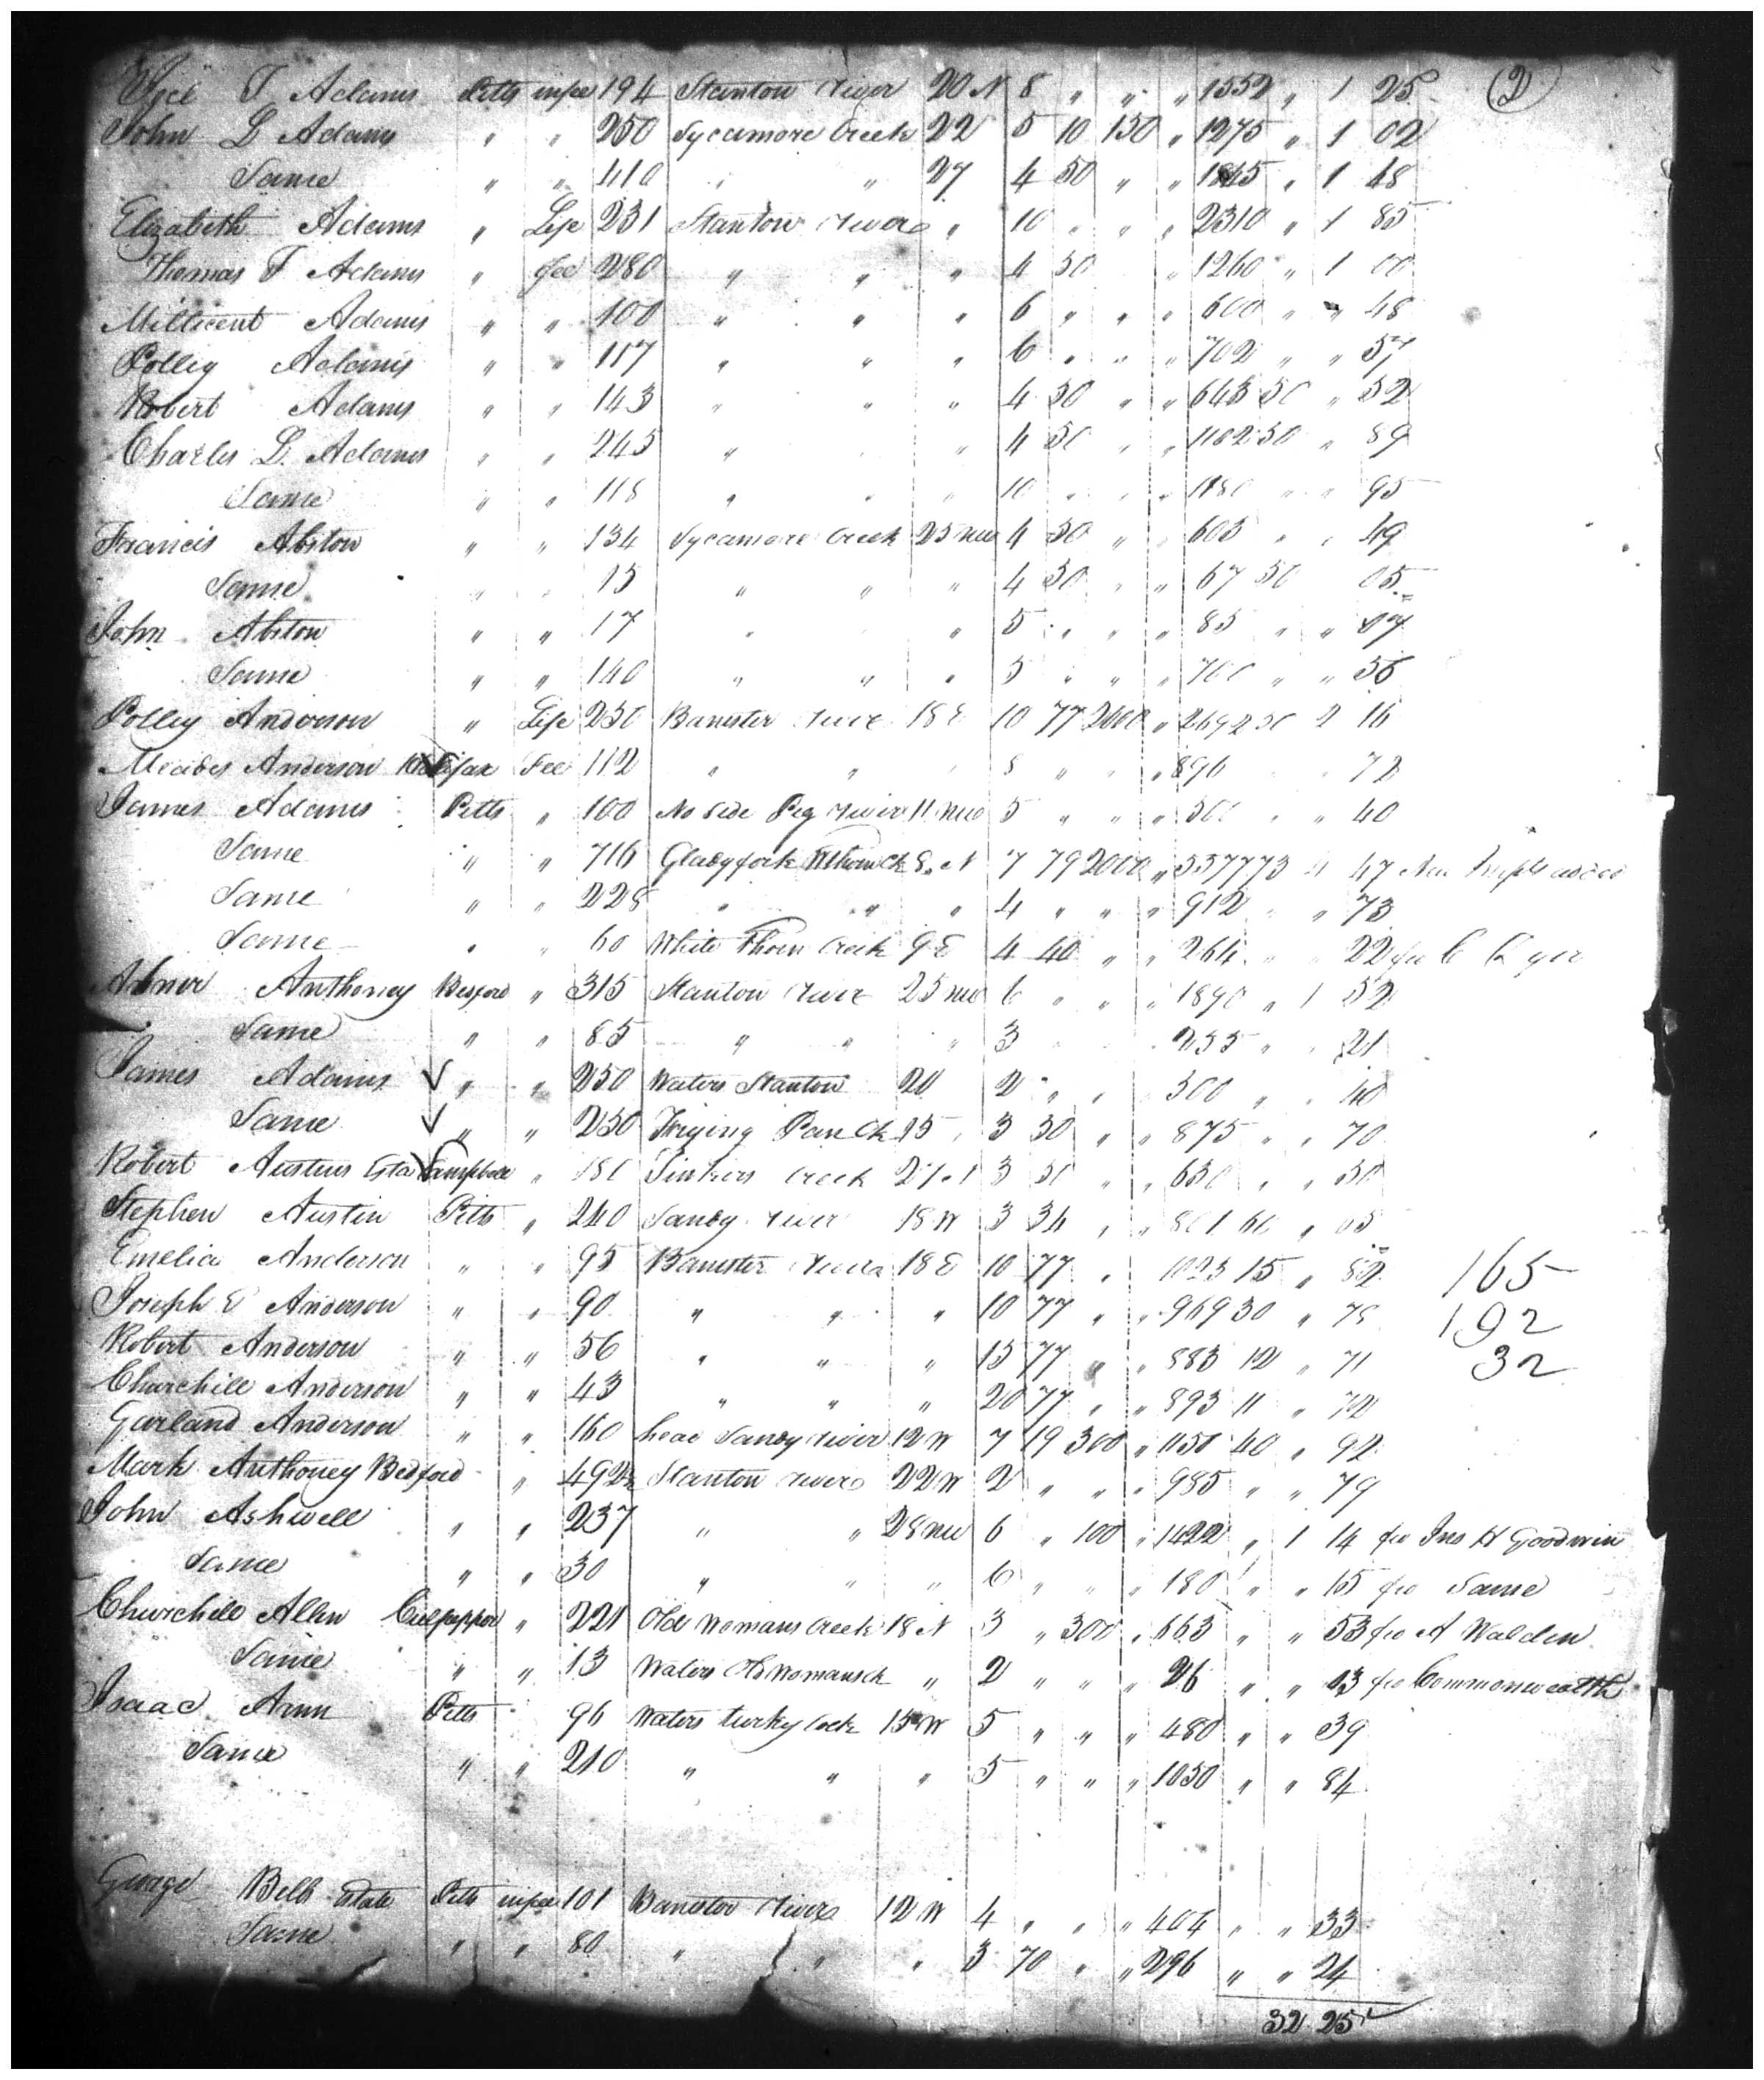 T Adams Pitts in fee 194 Stanton River 20 N 8 " " " 1552 " 1 25 (2)
John L Adams " " 250 Sycamore Creek 22 5 10 150 " 1275 " 1 02
Same " " 410 " " 27 4 50 " " 1845 " 1 48
Elizabeth Adams " Life 231 Stanton River " 10 " " " 2310 " 1 85
Thomas T Adams " fee 280 " " " 4 50 " 1260 " 1 00
Millicent Adams " " 100 " " " 6 " " " 600 " " 48
Polley Adams " " 117 " " " 6 " " " 702 " " 57
Robert Adams " " 143 " " " 4 50 " " 643 50 " 52
Charles L. Adams " " 245 " " 4 50 " " 1102 50 " 89
Same " " 118 " " " 10 " " " 1180 " " 95
Francis Abston " " 134 Sycamore Creek 25 NW 4 50 " " 603 " " 49
Same " " 15 " " " 4 50 " " 67 50 05
John Abston " " 17 " " 5 " " " 85 " " 07
Same " " 140 " " " 5 " " " 700 " " 56
Polley Anderson " Life 250 Banister River 18 E 10 77 2600 " 2692 50 2 16
Meades Anderson Halifax Fee 112 " " 8 " " " 896 " 72
James Adams Pitts " 100 No side Pig River 11 NW 5 " " " 500 " " 40
Same " " 716 Gladyfork Wthorn Ck 8 N 7 79 2000 " 5577 73 4 47 New Imp added
Same " " 228 " " " 4 " " " 912 " " 73
Same " " 60 White Thorn Creek 9 E 4 40 " " 264 " " 22 fro C
Abner Anthoney Bedford " 315 Stanton River 25 NW 6 " " " 1890 " 1 52
Same " " 85 " " " 3 255 " " 21
James Adams " " 250 Waters Stanton 20 2 " " 500 " " 40
Same " " 250 Frying Pan Ck 15 " 3 50 " " 875 " " 70
Robert Austins Esta Campbell " 180 Sinkers Creek 27 N 3 50 " " 630 " " 50
Stephen Austin Pitts " 240 Sandy River 18 W 3 34 " " 801 60 " 65
Emelia Anderson " " 95 Banister River 18 E 10 77 " 1023 15 " 82 165
Joseph E Anderson " " 90 " " " 10 77 " " 969 30 " 78 192
Robert Anderson " " 56 " " " 15 77 " " 883 12 " 71 32
Churchill Anderson " " 43 " " " 20 77 " " 893 11 " 72
Garland Anderson " " 160 head Sandy River 12 W 7 19 300 " 1150 40 " 92
Mark Anthoney Bedford " 492½ Stanton River 22 W 2 " " " 985 " " 79
John Ashwell " " 237 " " 28 NW 6 " 100 " 1422 " 1 14 fro Jno H Goodwin
Same " " 30 " " " 6 " " " 180 " " 15 fro Same
Churchill Allen Culpepper " 221 Old Womans Creek 18 N 3 " 300 " 663 " " 53 fro A Walden
Same " " 13 Waters Old Womans ck " 2 " " " 26 " " 03 fro Commonwealth
Isaac Arnn Pitts " 96 Waters turkey Cock 15 W 5 " " " 480 " " 39
Same " " 210 " " " 5 " " " 1050 " " 84
George Bells Estate Pitts in fee 101 Banister River 12 W 4 " " " 404 " " 33
Same " " 80 " " " 3 70 " " 296 " " 24
32 25